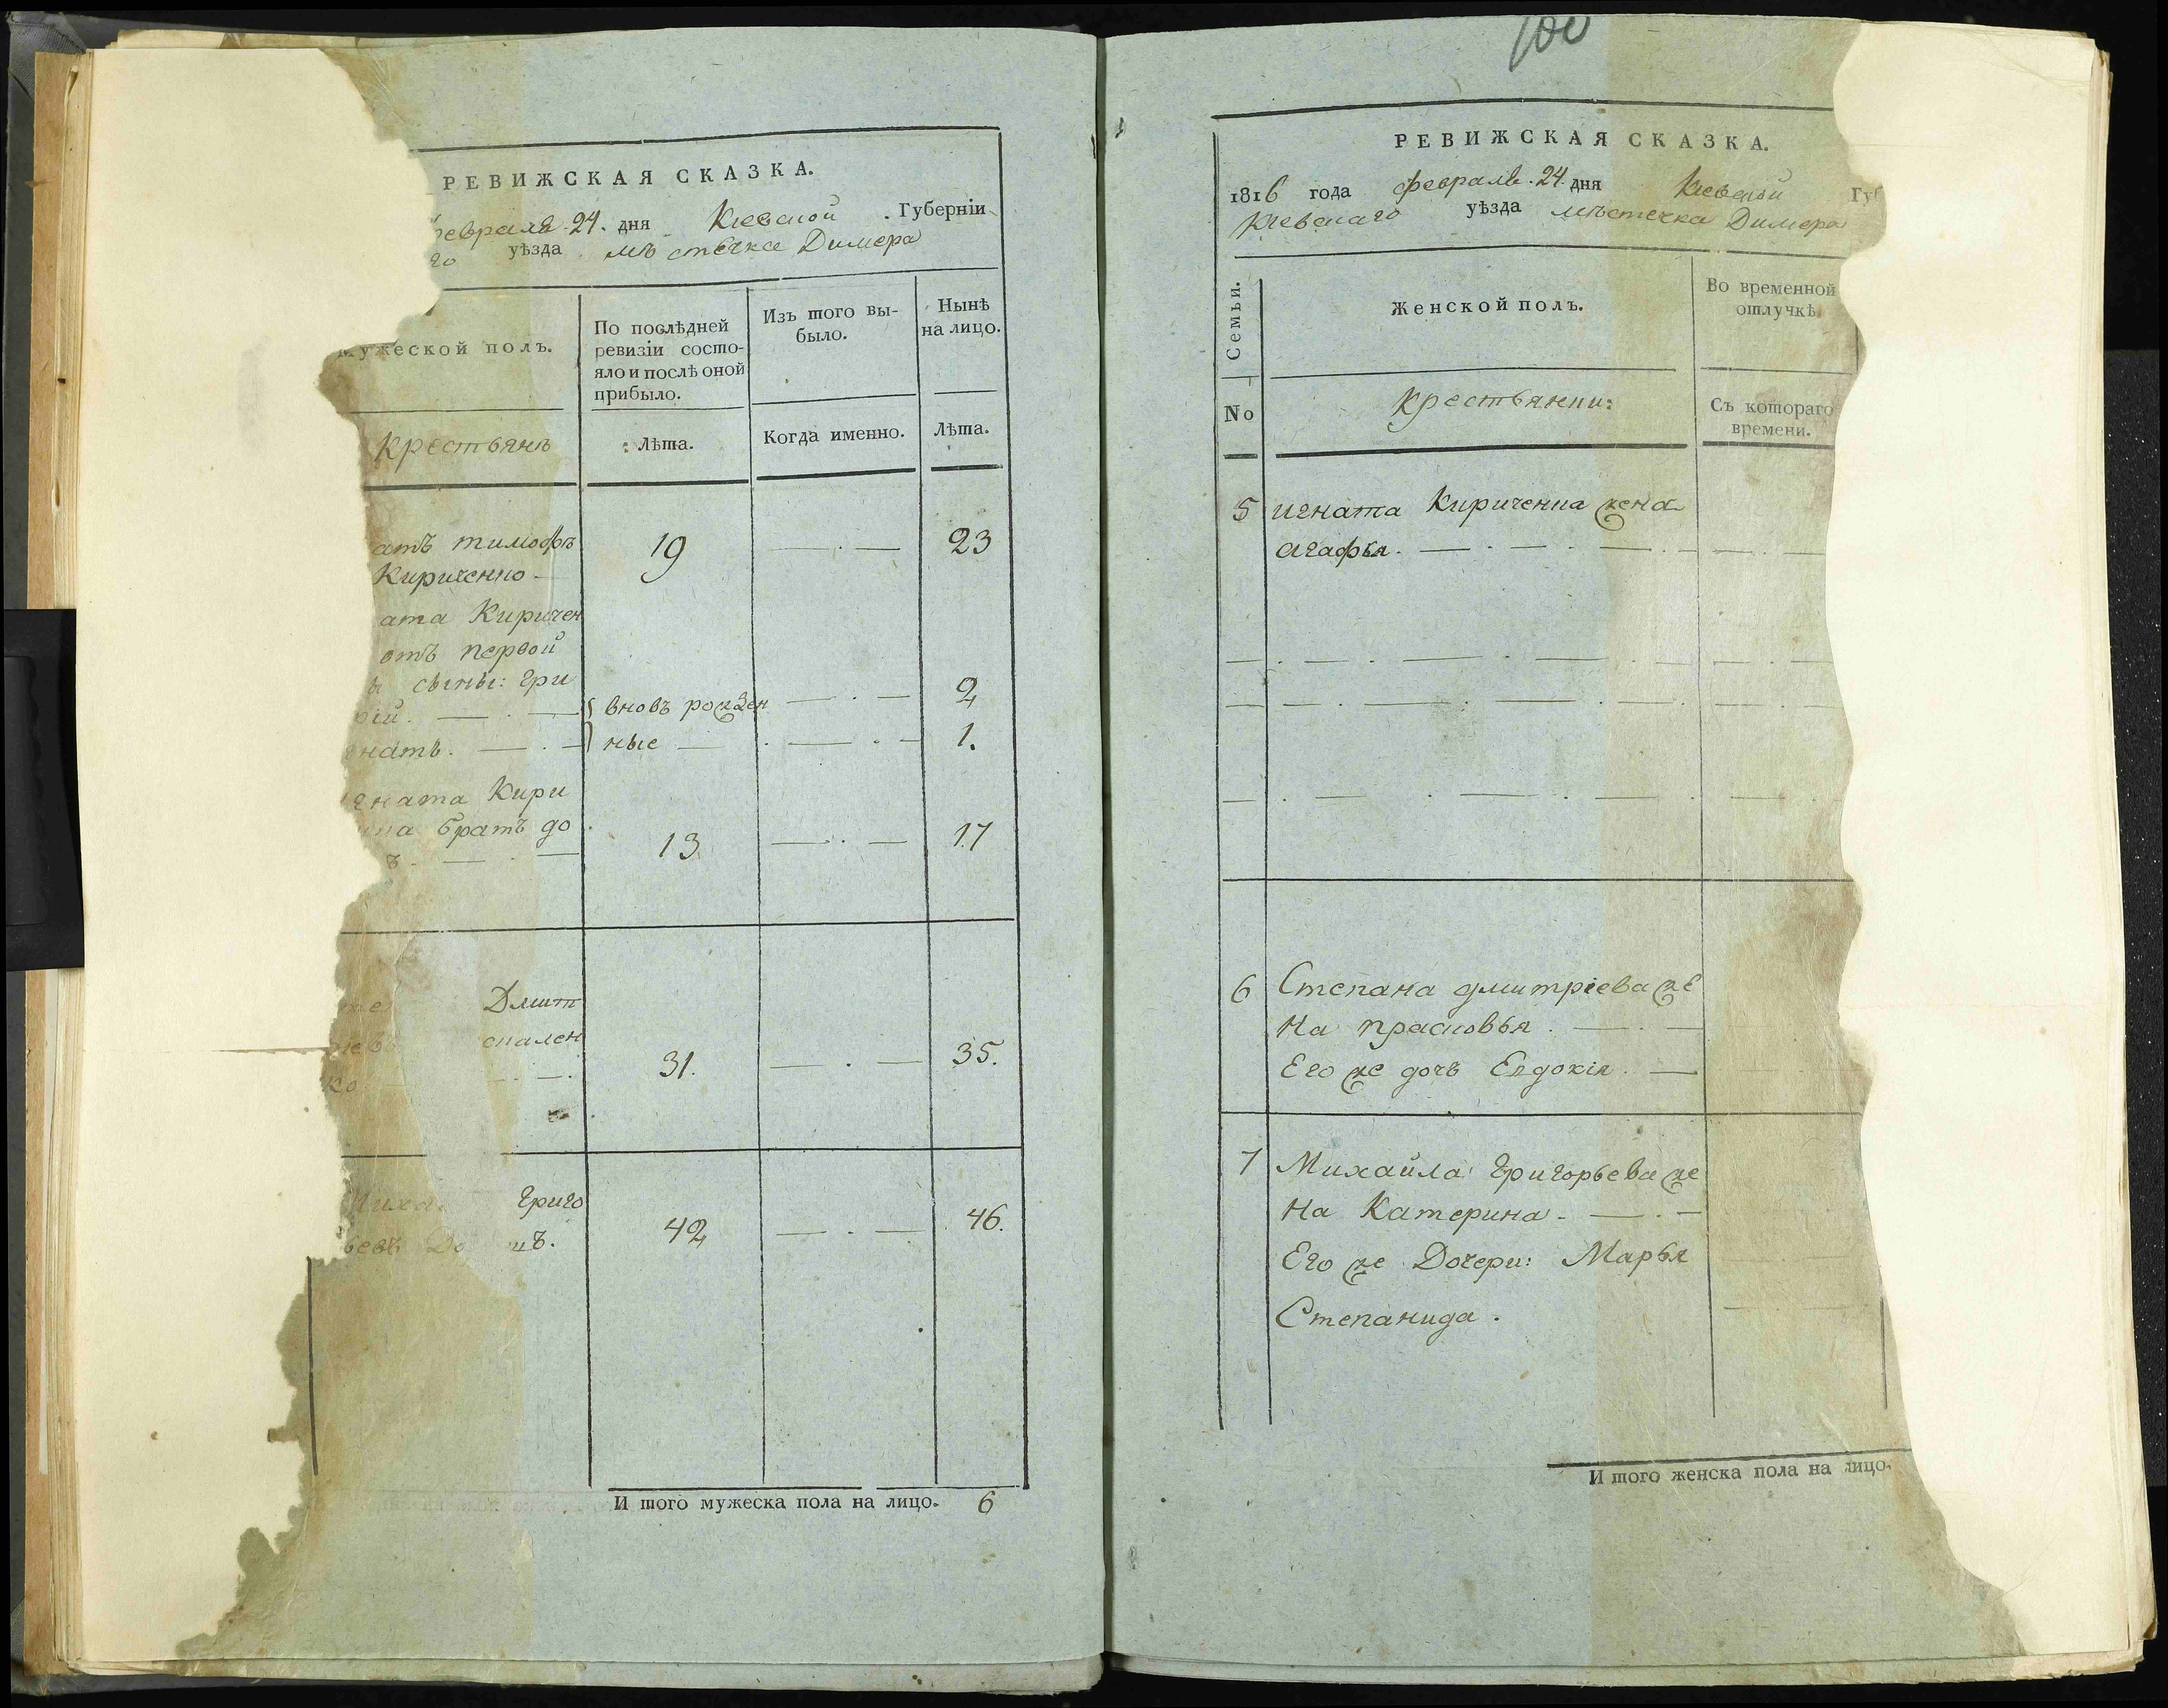 РЕВИЖСКАЯ СКАЗКА.
февраля. 24. дня Кіевской Губерніи
го уѣзда мѣстечка Димера
Мужеской полъ.
По послѣдней
ревизіи состо-
яло и послѣ оной
прибыло.
Изъ того вы-
было.
Нынѣ
на лицо.
крестьянъ
Лѣта.
Когда именно.
Лѣта.
атъ тимофѣ
Кириченко
19
23
ата Киричен
отъ первой
сыны: гри
рій.
вновъ рожден
2
натъ.
ные
1.
гната Кири
на братъ до
ъ.
13
17
Дмит
31.
35.
Григо
ьевъ
42
46.
И того мужеска пола на лицо. 6
100
РЕВИЖСКАЯ СКАЗКА.
1816 года февраля. 24. дня Кіевской Гу
Кіевскаго уѣзда мѣстечка Димера
Семьи.
Женской полъ.
Во временной
отлучкѣ.
No
крестьянки:
Съ котораго
времени.
5 игната Кириченка жена
агафья.
6 Степана дмитріева же
на прасковья.
Его же дочь Евдокія.
7 Михайла григорьева же
на Катерина
Его же Дочери: Марья
Степанида.
И того женска пола на лицо.